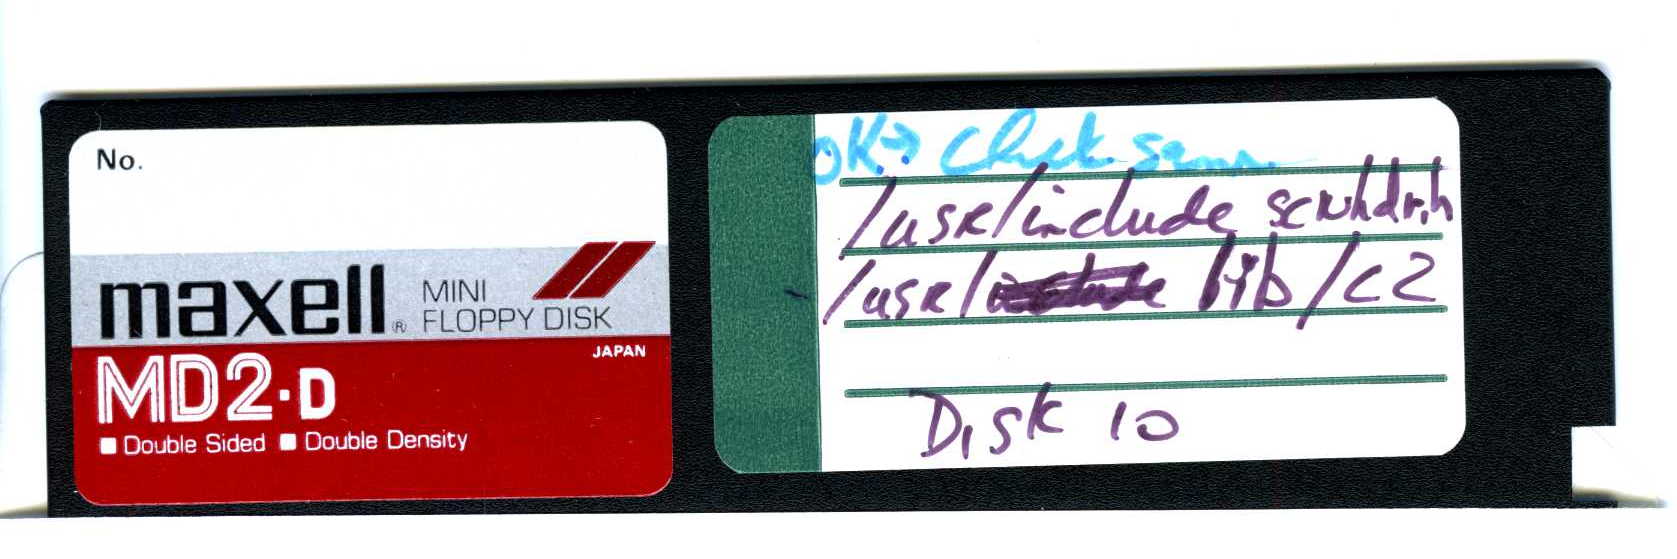 No.
maxell® MINI
FLOPPY DISK
JAPAN
MD2-D
Double Sided Double Density
OK→ Check
/usr/include scnhdr.h
/usr/ lib/c2
Disk 10